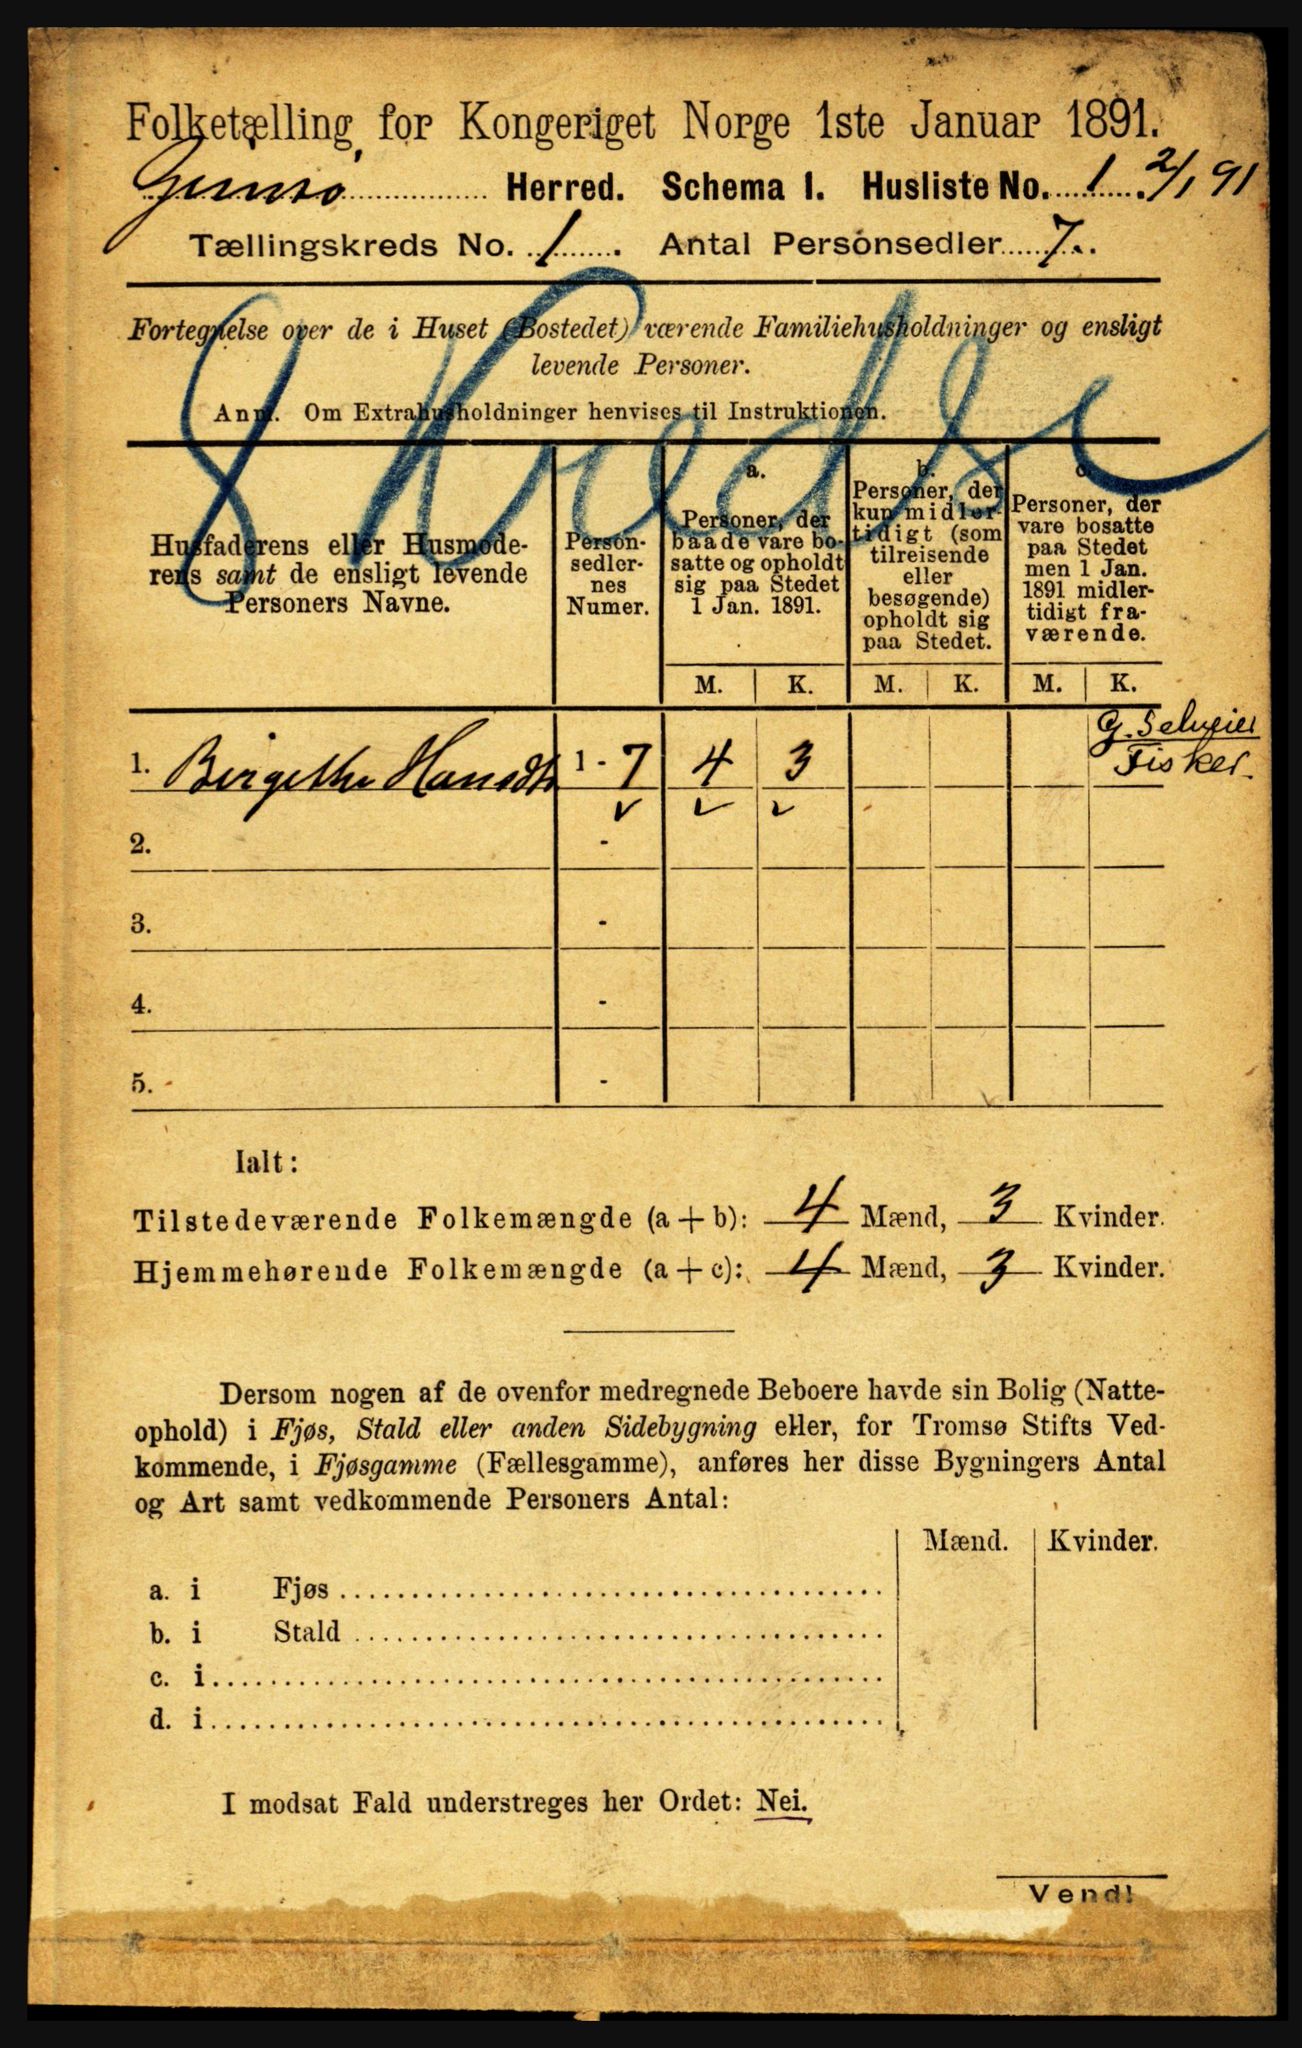 Folketælling for Kongeriget Norge 1ste Januar 1891.
Gimsø Herred. Schema 1. Husliste No. 1. 2/1 91
Tællingskreds No. 1. Antal Personsedler 7.
Fortegnelse over de i Huset (Bostedet) værende Familiehusholdninger og ensligt
levende Personer.
Anm. Om Extrahusholdninger henvises til Instruktionen.
Kreds
Husfaderens eller Husmode-
rens samt de ensligt levende
Personers Navne.
Person-
sedler-
nes
Numer.
a.
Personer, der
baade vare bo-
satte og opholdt
sig paa Stedet
1 Jan. 1891.
b.
Personer, der
kun midler-
tidigt (som
tilreisende
eller
besøgende)
opholdt sig
paa Stedet.
c.
Personer, der
vare bosatte
paa Stedet
men 1 Jan.
1891 midler-
tidigt fra-
værende.
M. K. M. K. M. K.
1. Birgethe Hansdtr 1 - 7 4 3 G. Selveier
Fisker.
2. -
3. -
4. -
5. -
Ialt:
Tilstedeværende Folkemængde (a + b): 4 Mænd, 3 Kvinder.
Hjemmehørende Folkemængde (a + c): 4 Mænd, 3 Kvinder.
Dersom nogen af de ovenfor medregnede Beboere havde sin Bolig (Natte-
ophold) i Fjøs, Stald eller anden Sidebygning eller, for Tromsø Stifts Ved-
kommende, i Fjøsgamme (Fællesgamme), anføres her disse Bygningers Antal
og Art samt vedkommende Personers Antal:
Mænd. Kvinder.
a. i Fjøs
b. i Stald
c. i
d. i
I modsat Fald understreges her Ordet: Nei.
Vend!